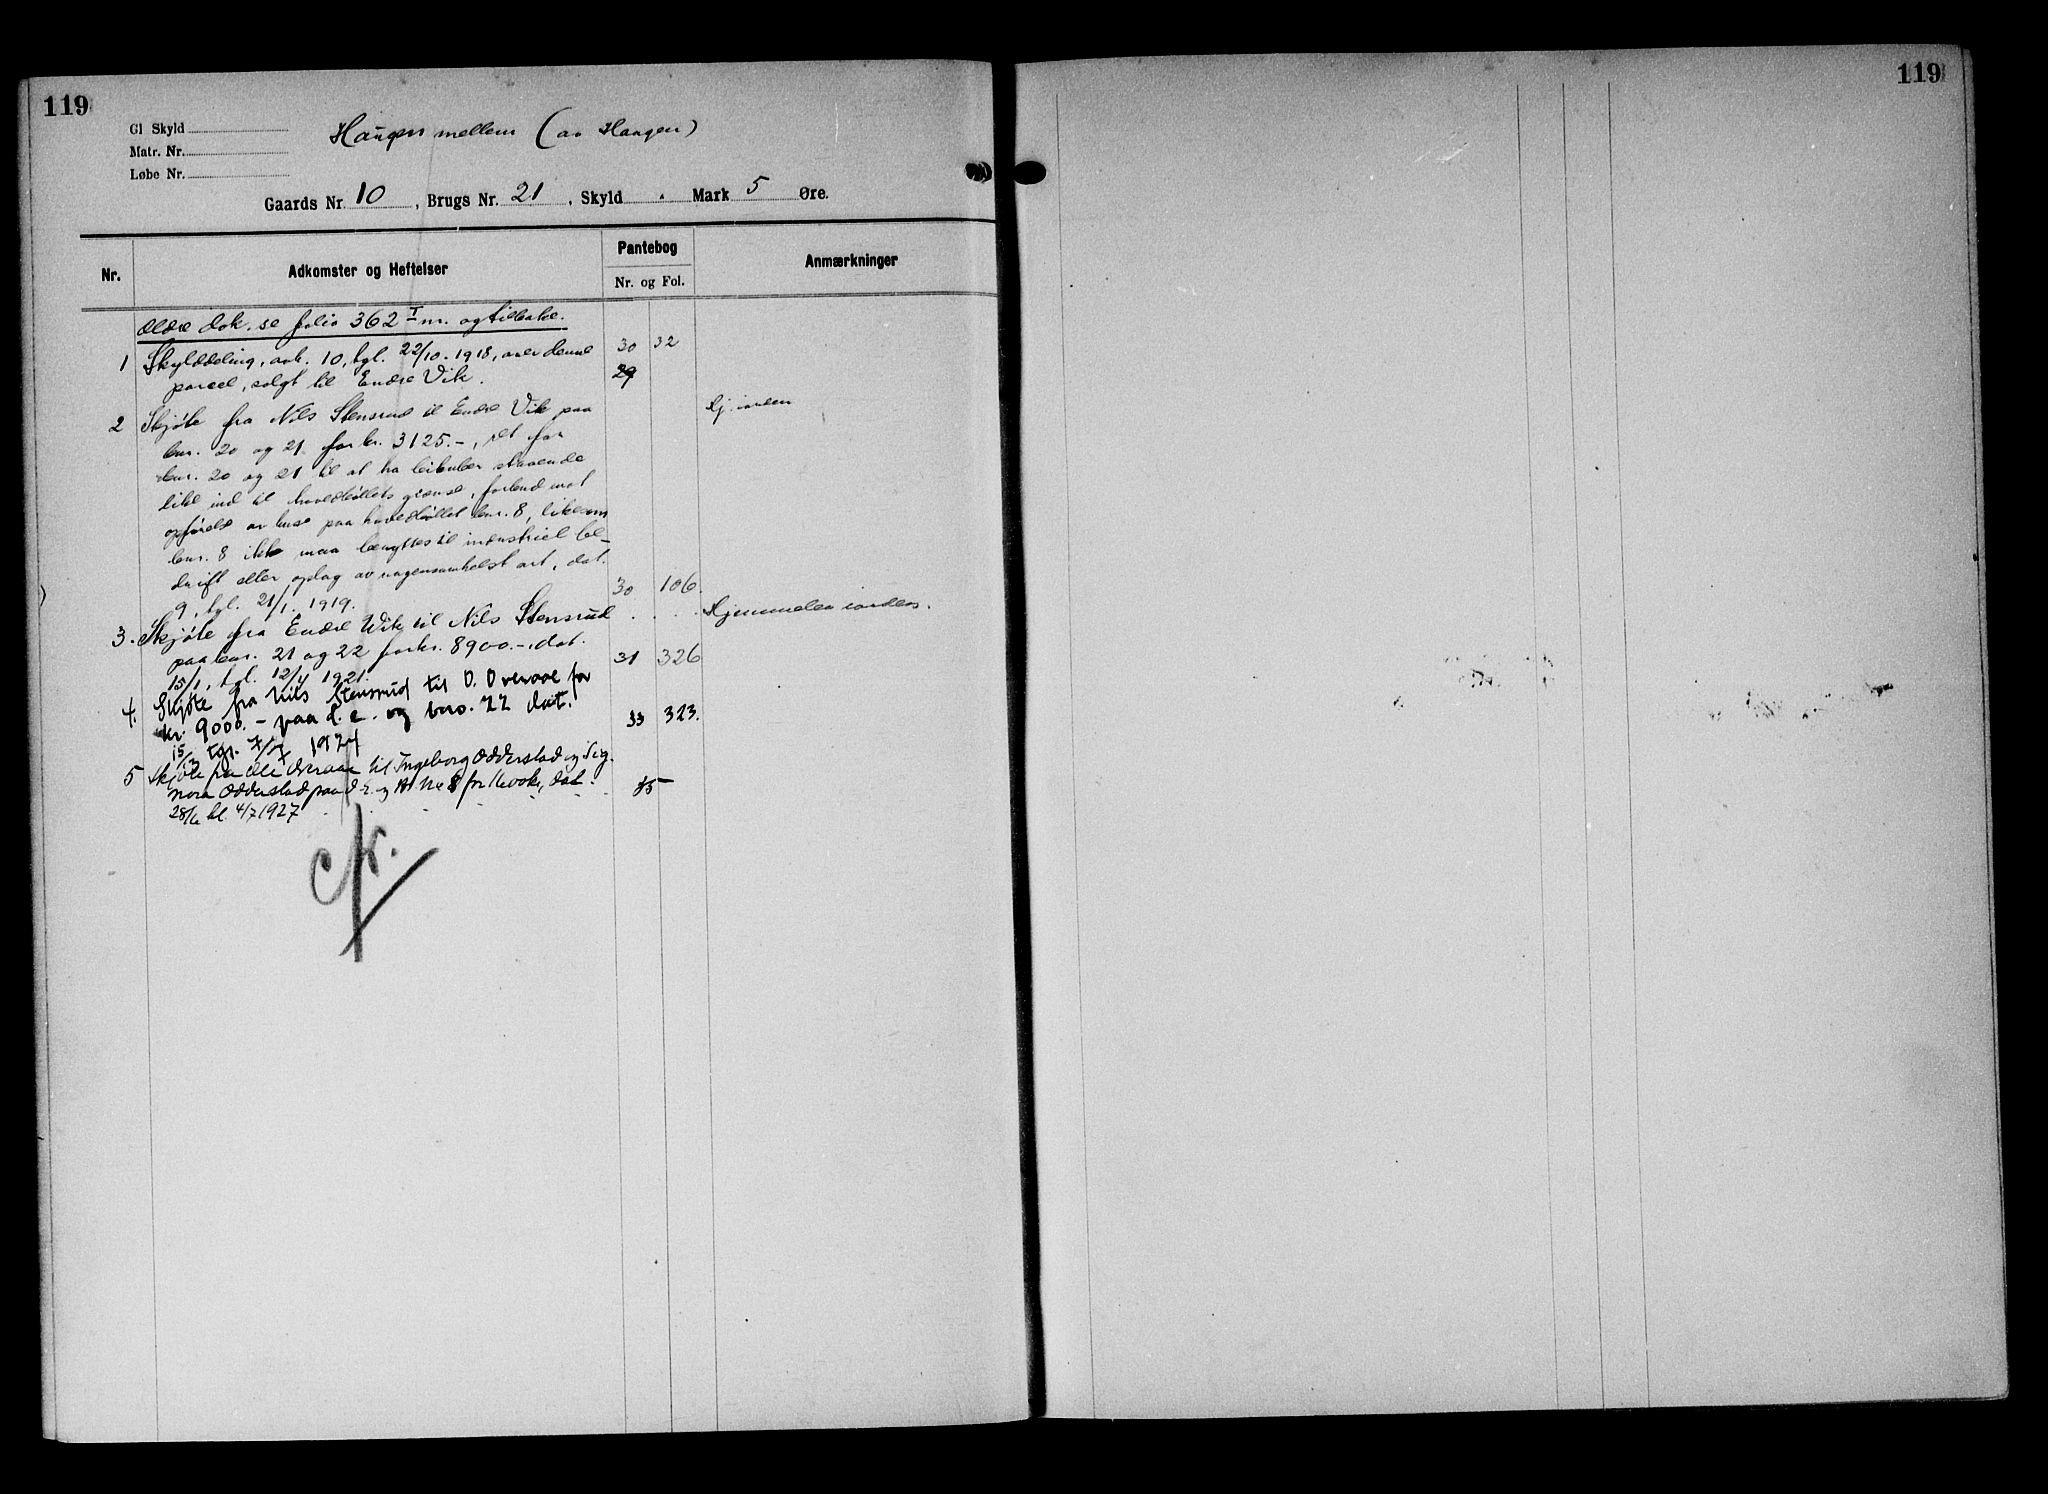 119
119
Gl Skyld
Matr. Nr.
Løbe Nr.
Haugen mellem (av Haugen)
Gaards Nr. 10, Brugs Nr. 21, Skyld - Mark 5 Øre.
Nr. Adkomster og Heftelser Pantebog Anmærkninger
Nr. og Fol.
Ældre dok. se folio 362 I m. og tilbake.
1 Skylddeling, avh. 10, tgl. 22/10. 1918, over denne 30 32
parcel, solgt til Endre Vik. 29
2 Skjøte fra Nils Stensrud til Endre Vik paa Hj. iorden
bnr. 20 og 21 for kr. 3125.-, ret for
bnr. 20 og 21 til at ha staaende
like ind til hovedbølets grænse, forbud mot
opførelse av huse paa hovedbølet bnr. 8, likesom
bnr. 8 ikke maa benyttes til industriel be-
drift eller oplag av nogensomhelst art, dat.
9, tgl. 21/1. 1919. 30 106.
3. Skjøte fra Endre Wik til Nils Stensrud . . . . Hjemmelen iorden.
paa bnr. 21 og 22 for kr. 8900.-, dat.
15/1, tgl. 12/4 1921. 31 326
4. Skjøte fra Nils Stensrud til O. Overaae for
kr. 9000.- paa d. e. og bno. 22 dat. 33 323.
15/12 tgl. 7/7 1924
5 Skjøte fra Ole Overaae til Ingeborg Odderstad og Sig-
nora Odderstad paa d. e. og for dat. 35
28/6 tl. 4/7 1927
Cfr.